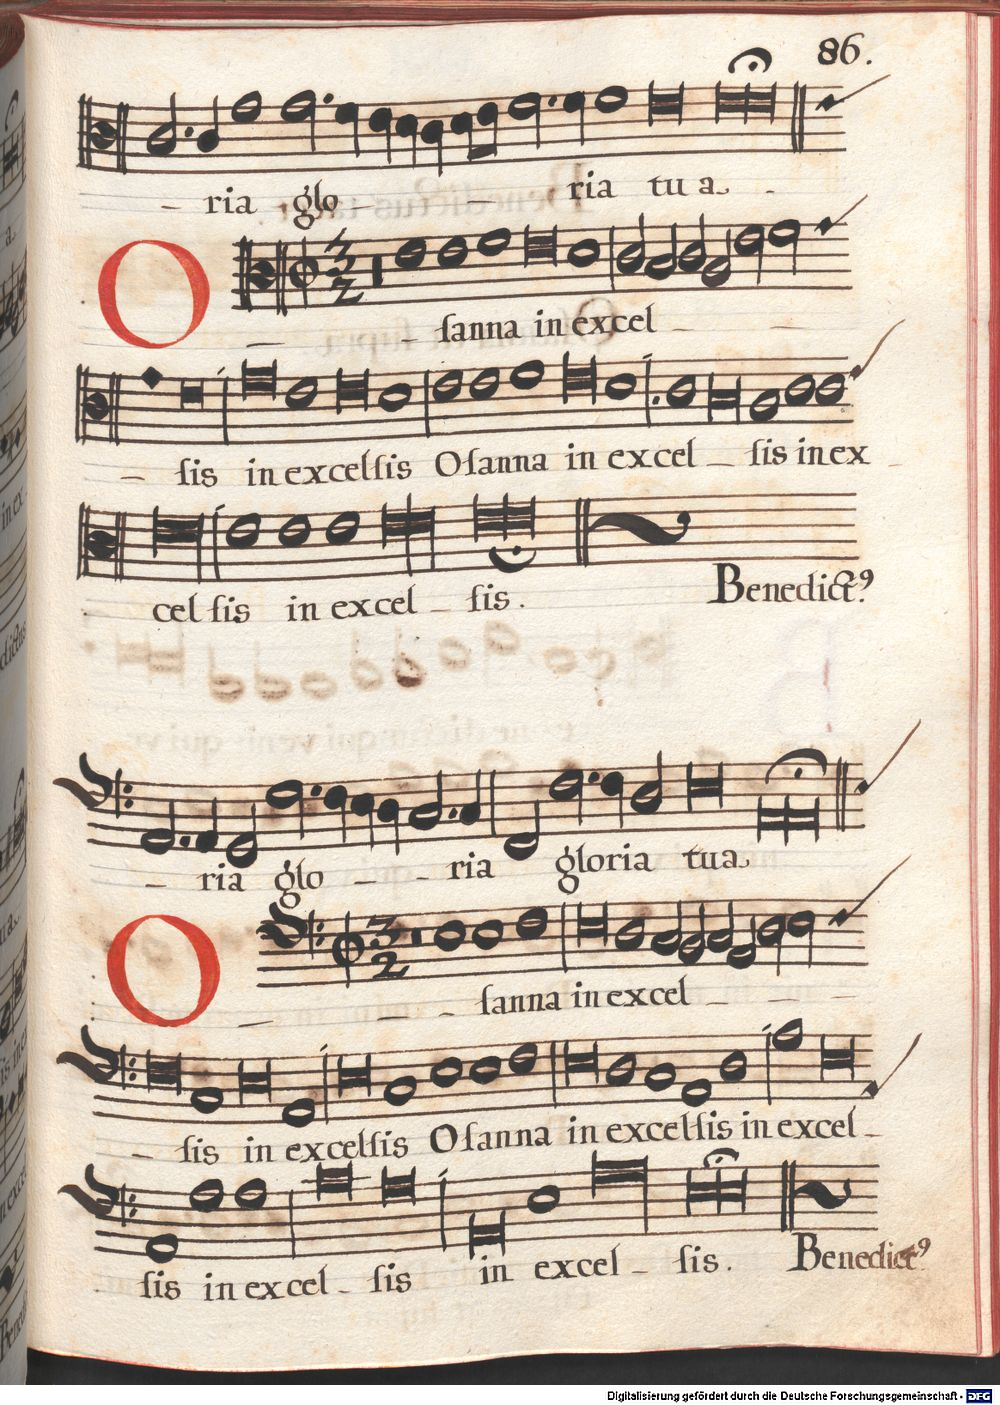 86.
ria glo - - ria tua
O - sanna in excel - -
- sis in excelsis Osanna in excel - sis in ex -
cel sis in excel - sis. Benedict9
- ria glo - - ria gloria tua
O - - - sanna in excel - - -
- sis in excelsis Osanna in excelsis in excel -
sis in excel - sis in excel - sis. Benedict9
Digitalisierung gefördert durch die Deutsche Forschungsgemeinschaft - DFG